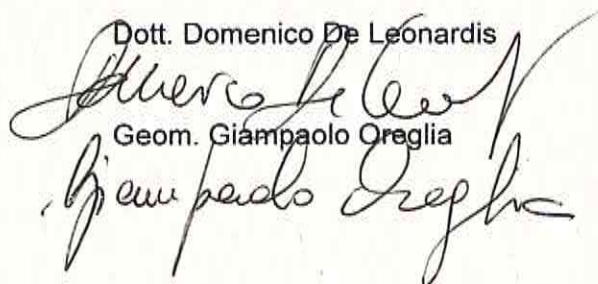 Dott. Domenico De Leonardis
Domenico De Leo
Geom. Giampaolo Oreglia
Giampaolo Oreglia